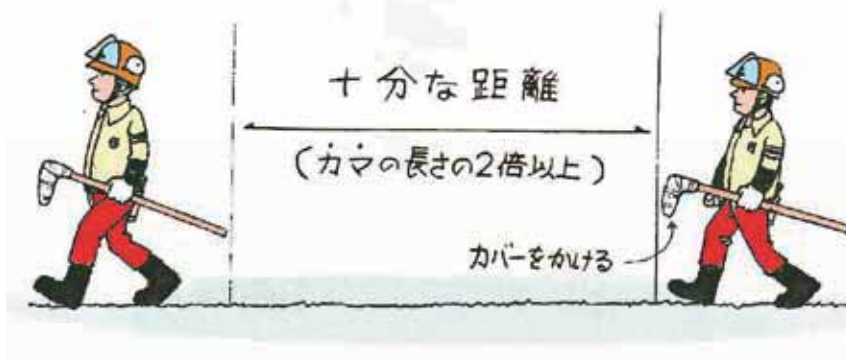 十分な距離
(カマの長さの2倍以上)
カバーをかける